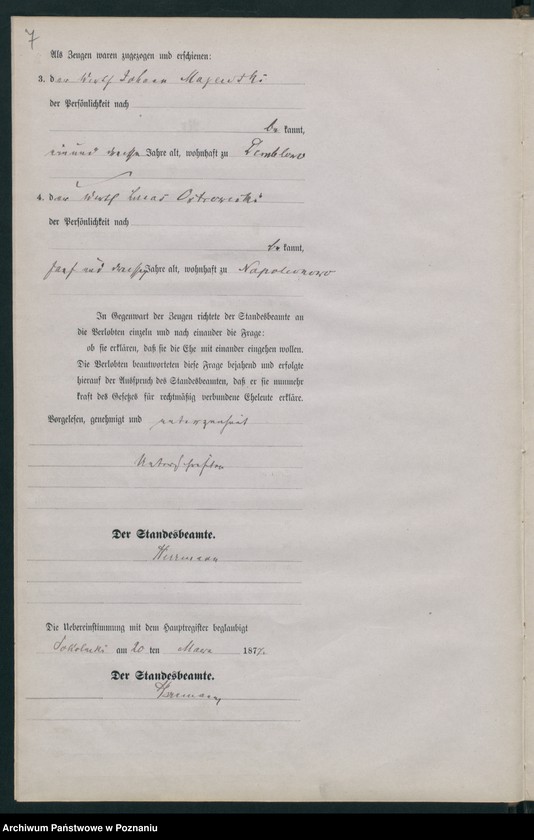 7
Als Zeugen waren zugezogen und erschienen:
3. der Wirth Johann Majewski
der Persönlichkeit nach
be kannt,
Jahre alt, wohnhaft zu Demblowo
4. der Wirth Lucas Ostrowski
der Persönlichkeit nach
be kannt,
fünf und dreißig Jahre alt, wohnhaft zu Napoleonowo
In Gegenwart der Zeugen richtete der Standesbeamte an
die Verlobten einzeln und nach einander die Frage:
ob sie erklären, daß sie die Ehe mit einander eingehen wollen.
Die Verlobten beantworteten diese Frage bejahend und erfolgte
hierauf der Ausspruch des Standesbeamten, daß er sie nunmehr
kraft des Gesetzes für rechtmäßig verbundene Eheleute erkläre.
Vorgelesen, genehmigt und
Unterschriften
Der Standesbeamte.
Herrmann
Die Uebereinstimmung mit dem Hauptregister beglaubigt
am 20 ten 187
Der Standesbeamte.
Herrmann
Archiwum Państwowe w Poznaniu